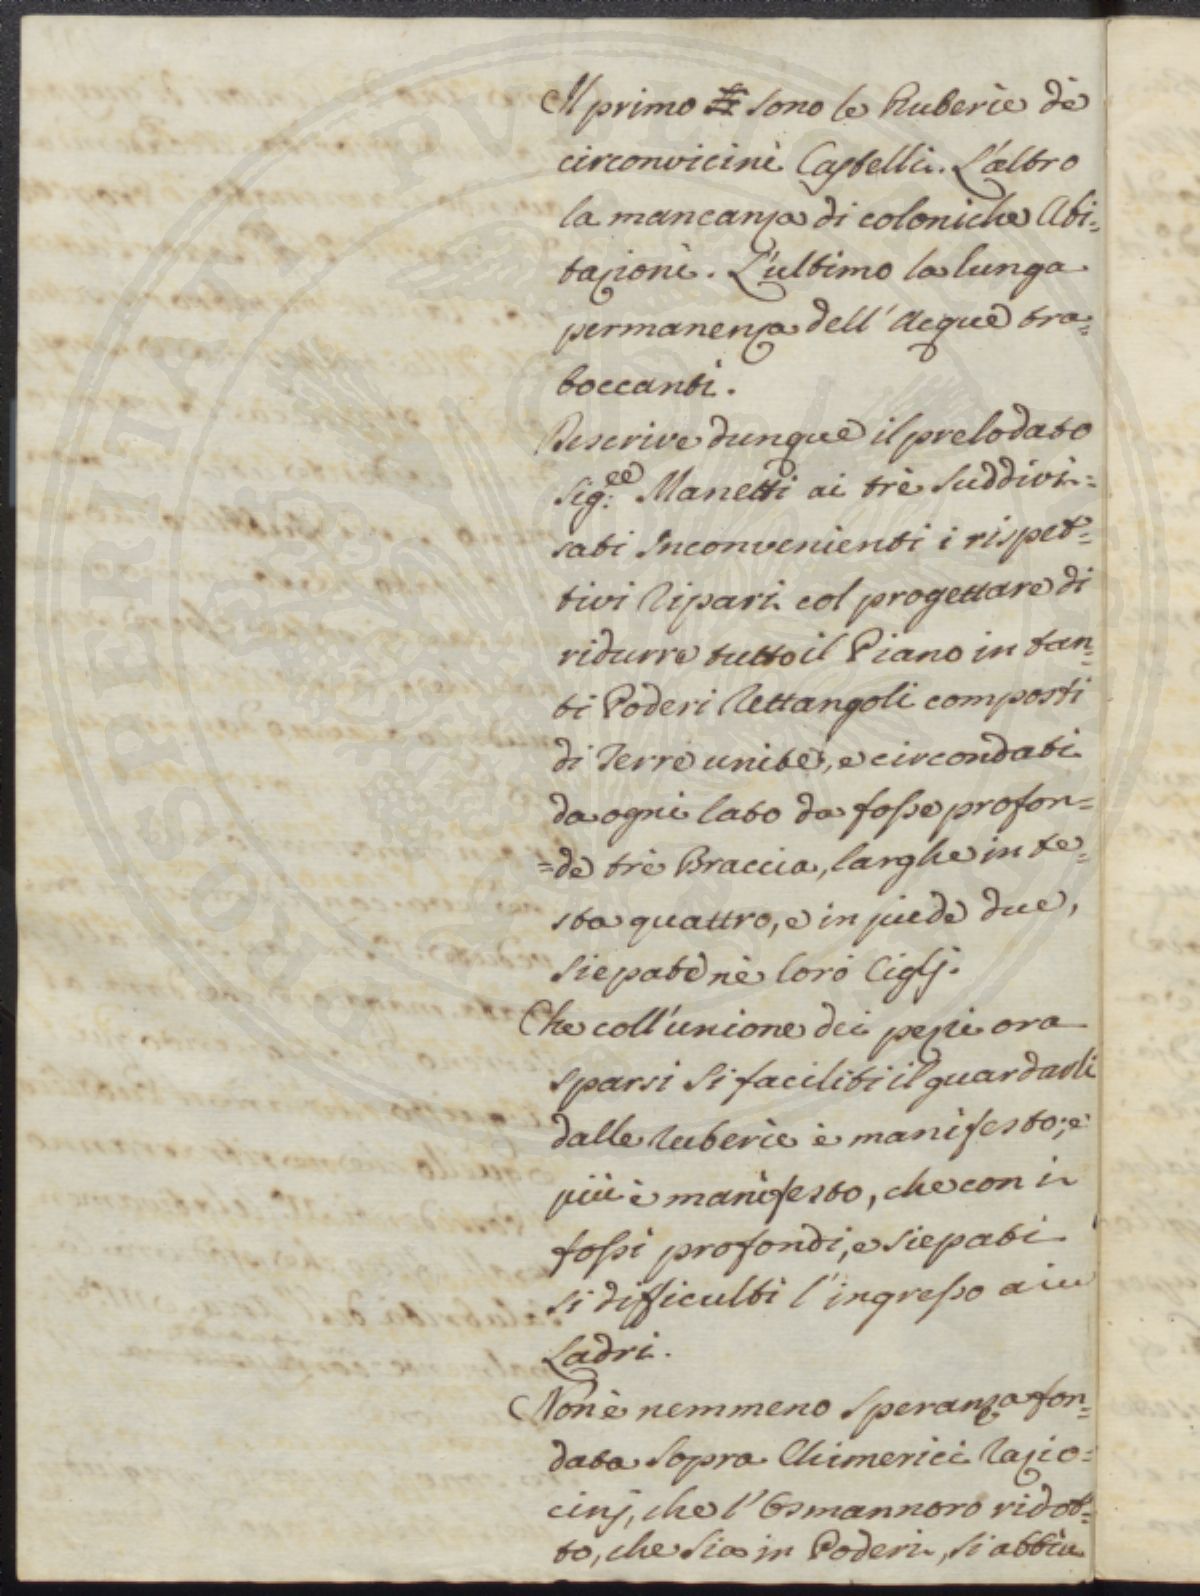 Il primo sono le Ruberie dè
circonvicini Castelli. L'altro
la mancanza di coloniche Abi=
tazioni. L'ultimo la lunga
permanenza dell'Acque tra=
boccanti.
Descrive dunque il prelodato
Sig.re Manetti ai trè suddivi=
sati Inconvenienti i rispet=
tivi Ripari col progettare di
ridurre tutto il Piano in tan=
ti Poderi Rettangoli composti
di Terre unite, e circondati
da ogni lato da fosse profon=
=de trè Braccia, larghe in te=
sta quattro, e in piede due,
siepate nè loro Ciglj.
Che coll'unione dei pezzi ora
sparsi si faciliti il guardarli
dalle Ruberie è manifesto; e
più è manifesto, che con i
fossi profondi, e siepati
si difficulti l'ingresso ai
Ladri.
Non è nemmeno speranza fon=
data sopra Chimerici Razio=
cinj, che l'Osmannoro ridot=
to, che sia in Poderi, si abbia
PROSPERITATI PVBLICAE